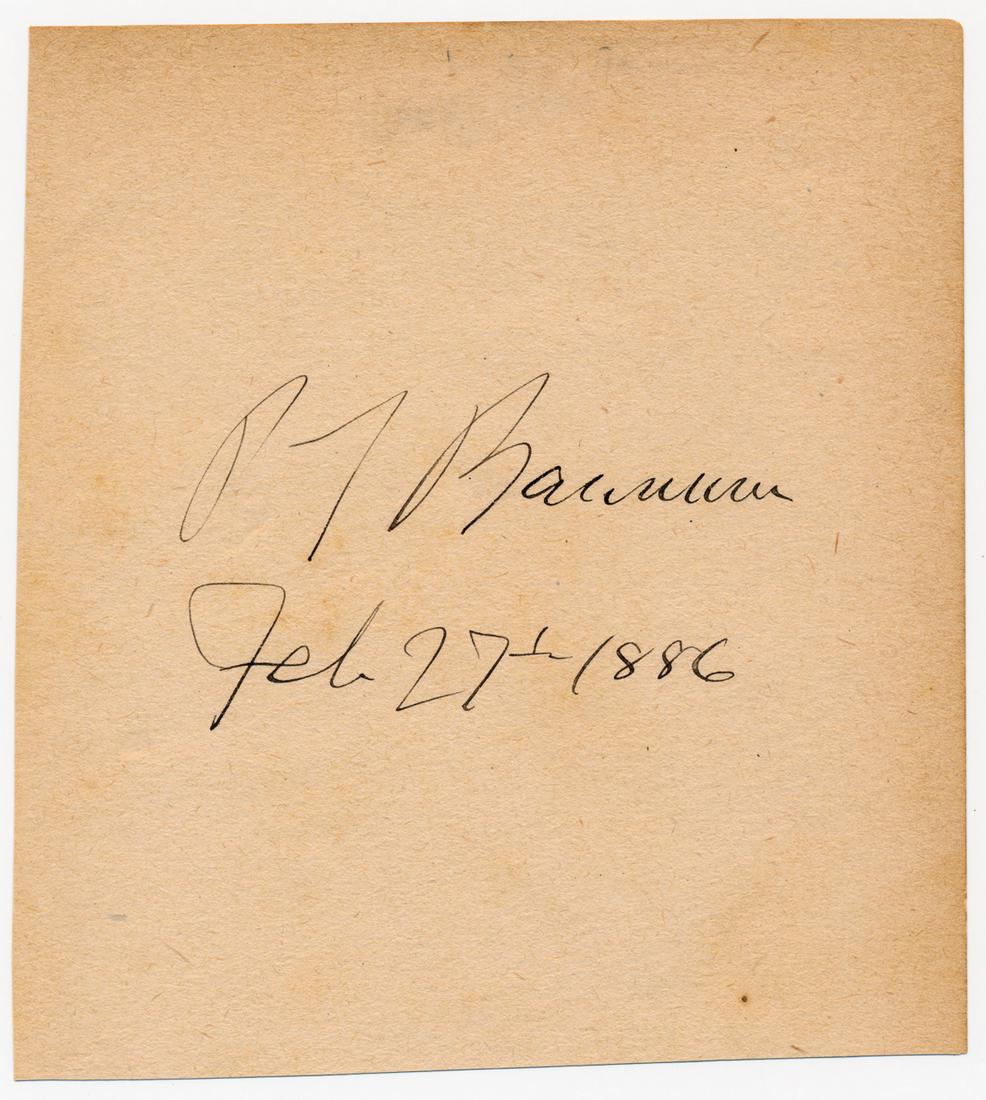 P T Barnum
Feb 27th 1886